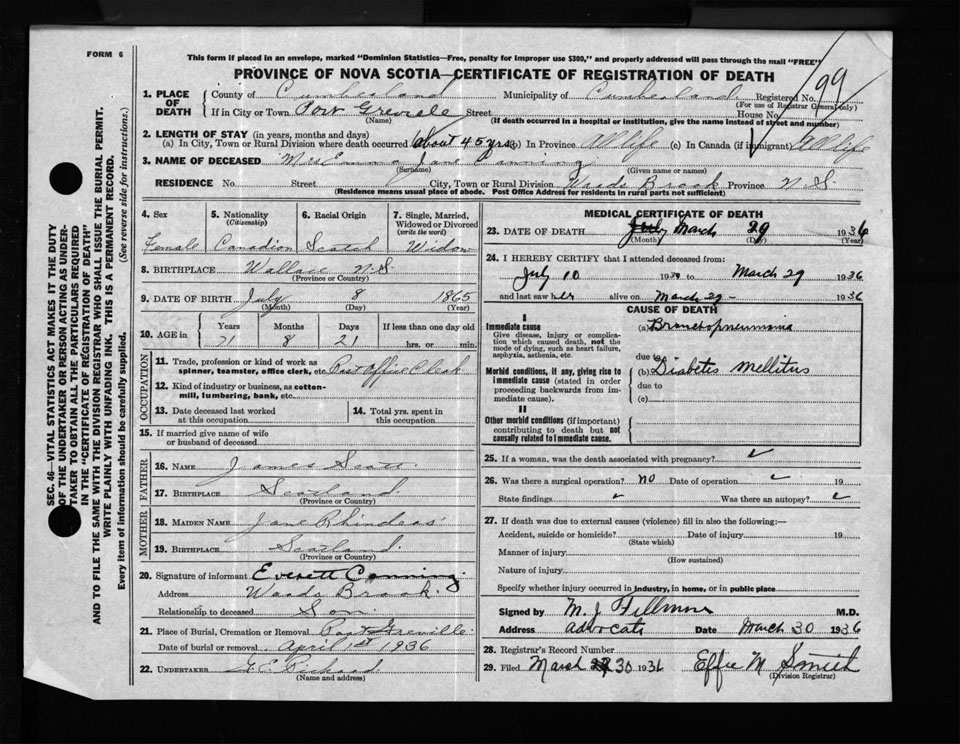 FORM 6
This form if placed in an envelope, marked "Dominion Statistics—Free, penalty for improper use $300," and properly addressed will pass through the mail "FREE"
PROVINCE OF NOVA SCOTIA—CERTIFICATE OF REGISTRATION OF DEATH
1. PLACE OF DEATH County of Cumberland Municipality of Cumberland Registered No. 99
(For use of Registrar General only)
If in City or Town Port Greville Street House No.
(Name) (If death occurred in a hospital or institution, give the name instead of street and number)
2. LENGTH OF STAY (in years, months and days)
(a) In City, Town or Rural Division where death occurred About 45 yrs (b) In Province All life (c) In Canada (if immigrant) All life
3. NAME OF DECEASED Mrs Emma Jane Canning
(Surname) (Given name or names)
RESIDENCE No. Street City, Town or Rural Division Woods Brook Province N.S.
(Residence means usual place of abode. Post Office Address for residents in rural parts not sufficient)
4. Sex 5. Nationality (Citizenship) 6. Racial Origin 7. Single, Married, Widowed or Divorced (write the word)
Female Canadian Scotch Widow
8. BIRTHPLACE Wallace N.S.
(Province or Country)
9. DATE OF BIRTH July 8 1865
(Month) (Day) (Year)
10. AGE in Years Months Days If less than one day old
71 8 21 hrs. or min.
OCCUPATION
11. Trade, profession or kind of work as spinner, teamster, office clerk, etc. Post Office Clerk
12. Kind of industry or business, as cotton-mill, lumbering, bank, etc.
13. Date deceased last worked at this occupation
14. Total yrs. spent in this occupation
15. If married give name of wife or husband of deceased
FATHER
16. NAME James Scott
17. BIRTHPLACE Scotland.
(Province or Country)
MOTHER
18. MAIDEN NAME Jane
19. BIRTHPLACE Scotland.
(Province or Country)
20. Signature of informant Everett Canning
Address Woods Brook.
Relationship to deceased Son
21. Place of Burial, Cremation or Removal Port Greville
Date of burial or removal April 1st 1936
22. UNDERTAKER Richard
(Name and address)
MEDICAL CERTIFICATE OF DEATH
23. DATE OF DEATH July March 29 1936
(Month) (Day) (Year)
24. I HEREBY CERTIFY that I attended deceased from:
July 10 19 to March 29 1936
and last saw her alive on March 29 - 1936
CAUSE OF DEATH
I
Immediate cause
Give disease, injury or complication which caused death, not the mode of dying, such as heart failure, asphyxia, asthenia, etc.
(a) Bronchopneumonia
due to
Morbid conditions, if any, giving rise to immediate cause (stated in order proceeding backwards from immediate cause).
(b) Diabetes Mellitus
due to
(c)
II
Other morbid conditions (if important) contributing to death but not causally related to immediate cause.
25. If a woman, was the death associated with pregnancy? ✓
26. Was there a surgical operation? no Date of operation ✓ 19
State findings ✓ Was there an autopsy? ✓
27. If death was due to external causes (violence) fill in also the following:—
Accident, suicide or homicide? Date of injury 19
(State which)
Manner of injury
(How sustained)
Nature of injury
Specify whether injury occurred in industry, in home, or in public place
Signed by M. J. Fillmore M.D.
Address Advocate Date March 30 1936
28. Registrar's Record Number
29. Filed March 30 193 Effie M Smith
(Division Registrar)
SEC. 46—VITAL STATISTICS ACT MAKES IT THE DUTY
OF THE UNDERTAKER OR PERSON ACTING AS UNDER-
TAKER TO OBTAIN ALL THE PARTICULARS REQUIRED
IN THE "CERTIFICATE OF REGISTRATION OF DEATH"
AND TO FILE THE SAME WITH THE DIVISION REGISTRAR WHO SHALL ISSUE THE BURIAL PERMIT.
WRITE PLAINLY WITH UNFADING INK. THIS IS A PERMANENT RECORD.
Every item of information should be carefully supplied. (See reverse side for instructions.)